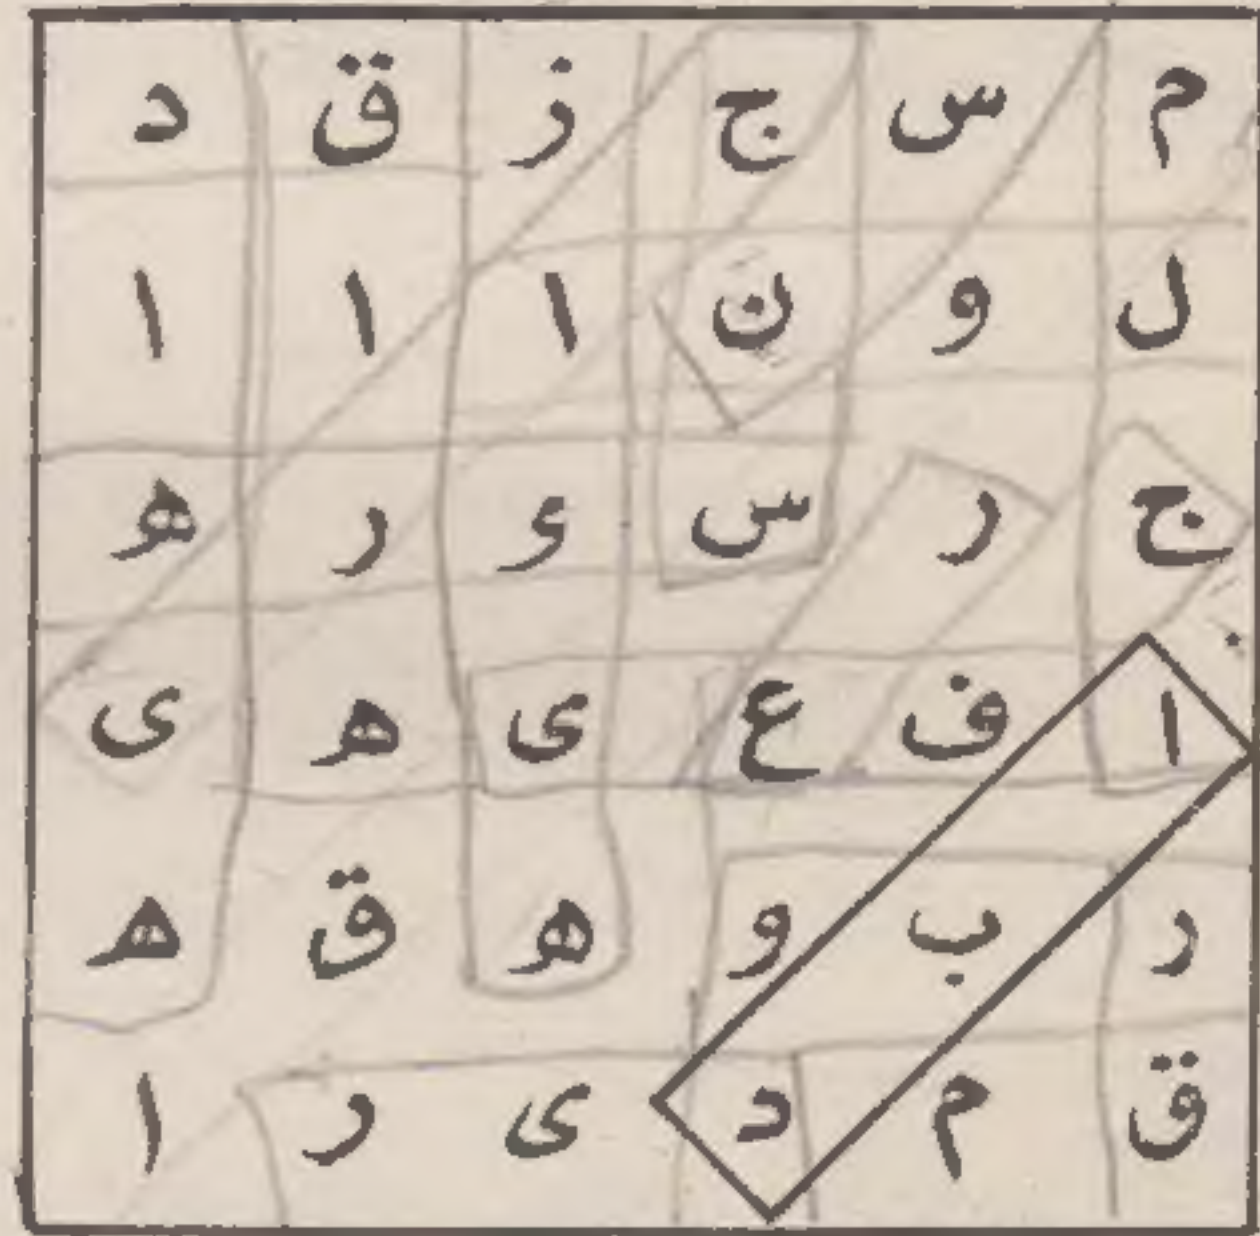 م س ج ز ق د
ل و ن ا ا ا
ج ر س و ر ه
ا ف ع ى ه ى
ر ب و ه ق ه
ق م د ى ر ا